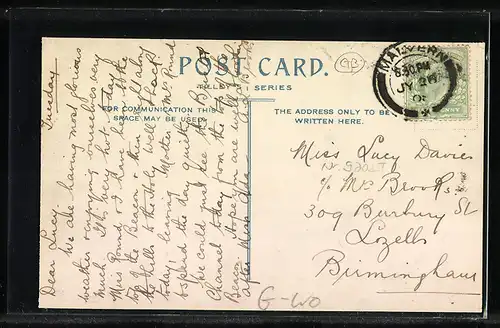 POST CARD.
TILLEY SERIES
FOR COMMUNICATION THIS
SPACE MAY BE USED
THE ADDRESS ONLY TO BE
WRITTEN HERE.
MALVERN
6.30 PM
JY 26
GB
Miss Lucy Davies
c/o Mrs Brooks
309 Burbury St
Lozells
Birmingham
G-WO
Tuesday
Dear Lucy.
We are having most glorious
weather & enjoying ourselves very
much. It is very hot to-day.
Miss Pound & I have been to the
top of the Beacon & then along
the Hills to the Holy Well & back
today leaving Mother & Mrs Pound
to spend the day quietly
We could just see the Bristol
Channel today from the top of the
Beacon. Hope you are well
after Miss